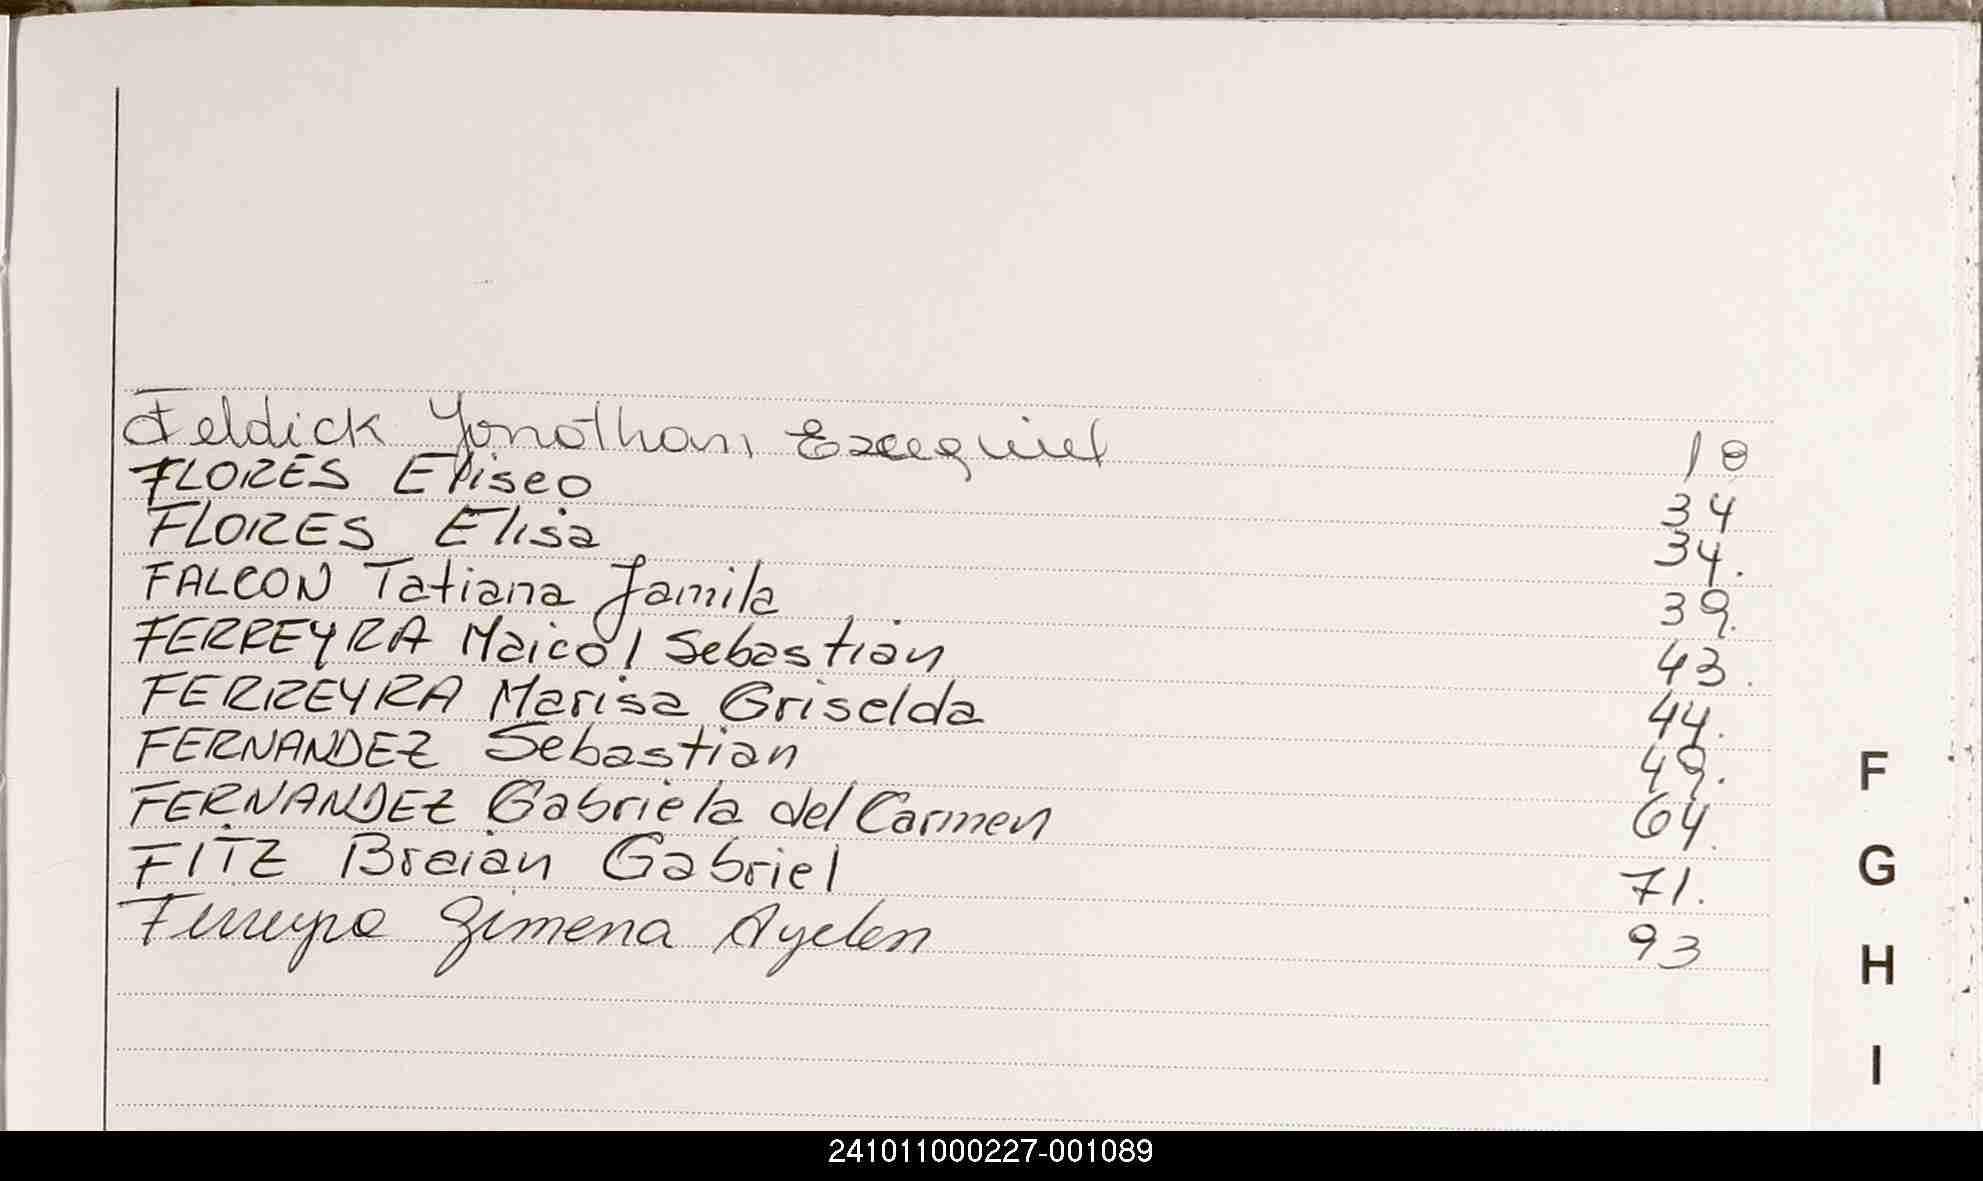 Feldick Yonathan Ezequiel 18
FLORES Eliseo 34
FLORES Elisa 34.
FALCON Tatiana Jamila 39.
FERREYRA Maicol Sebastián 43.
FERREYRA Marisa Griselda 44.
FERNANDEZ Sebastian 49.
FERNANDEZ Gabriela del Carmen 64.
FITZ Breian Gabriel 71.
Ferreyra Gimena Ayelen 93
F
G
H
I
241011000227-001089